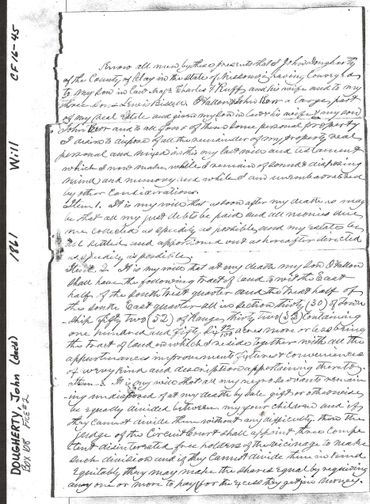 Know all men by these presents that I John Dougherty
of the County of Clay in the State of Missouri having conveyed
to my Son in Law Maj. Charles F Ruff, and his wife and to my
three Sons Lewis Bissell O'Fallon & John Kerr a large part
of my Real Estate and given my Son in Law & his wife & my son
John Kerr and to all four of them some personal property
I desire to dispose of all the remainder of my property real
personal and mixed in this my last will and testament
which I now make while I remain of sound & disposing
mind and memory and while I am
by other considerations.
Item 1. It is my will that as soon after my death as may
be that all my just debts be paid and all monies due
me collected as speedily as possible and my estate be
all settled and apportioned out as hereafter directed
as speedily as possible
Item 2 It is my will that at my death my Son O'Fallon
shall have the following tract of land to wit the East
half of the South West quarter and the West half of
the South East quarter all in Section thirty (30) of Town
ship fifty two (52) of Range thirty two (32) Containing
one hundred and fifty acres more or less being
the tract of land on which I reside together with all the
appurtenances improvements fixtures & conveniences
of every kind and description appertaining thereto
Item 3 It is my will that all my negro servants remain
ing undisposed of at my death by sale gift or otherwise
be equally divided between my four children and if
they cannot divide them without any difficulty then the
Judge of the Circuit Court shall appoint three Compe
tent disinterested free holders of the vicinage to make
such division and if they cannot divide them in kind
Equitably they may make the shares equal by requiring
any one or more to pay for the excess they get in money.
DOUGHERTY, John (decd)
Box 76F
1861
Will
CF 16-45